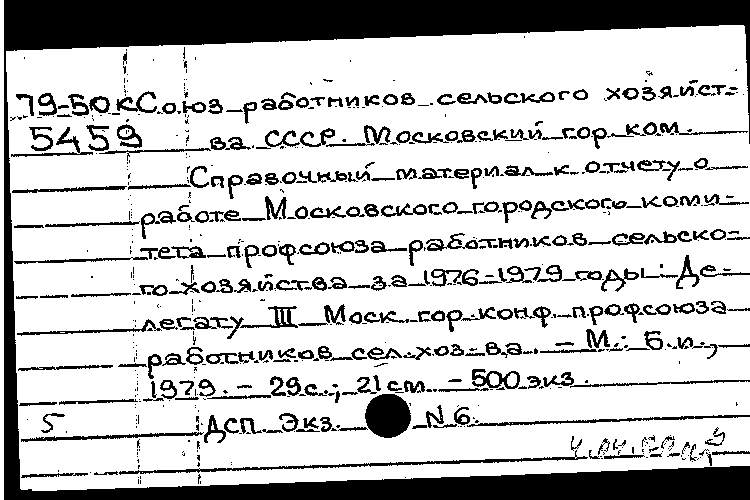 79-50к Союз работников сельского хозяйст-
5459 ва СССР. Московский гор. ком.
Справочный материал к отчету о
работе Московского городского коми-
тета профсоюза работников сельско-
го хозяйства за 1976-1979 годы: Де-
легату III Моск. гор. конф. профсоюза
работников сел. хоз-ва. – М.: Б.и.,
1979. – 29с.; 21 см – 500 экз.
5 Дсп. Экз. N 6.